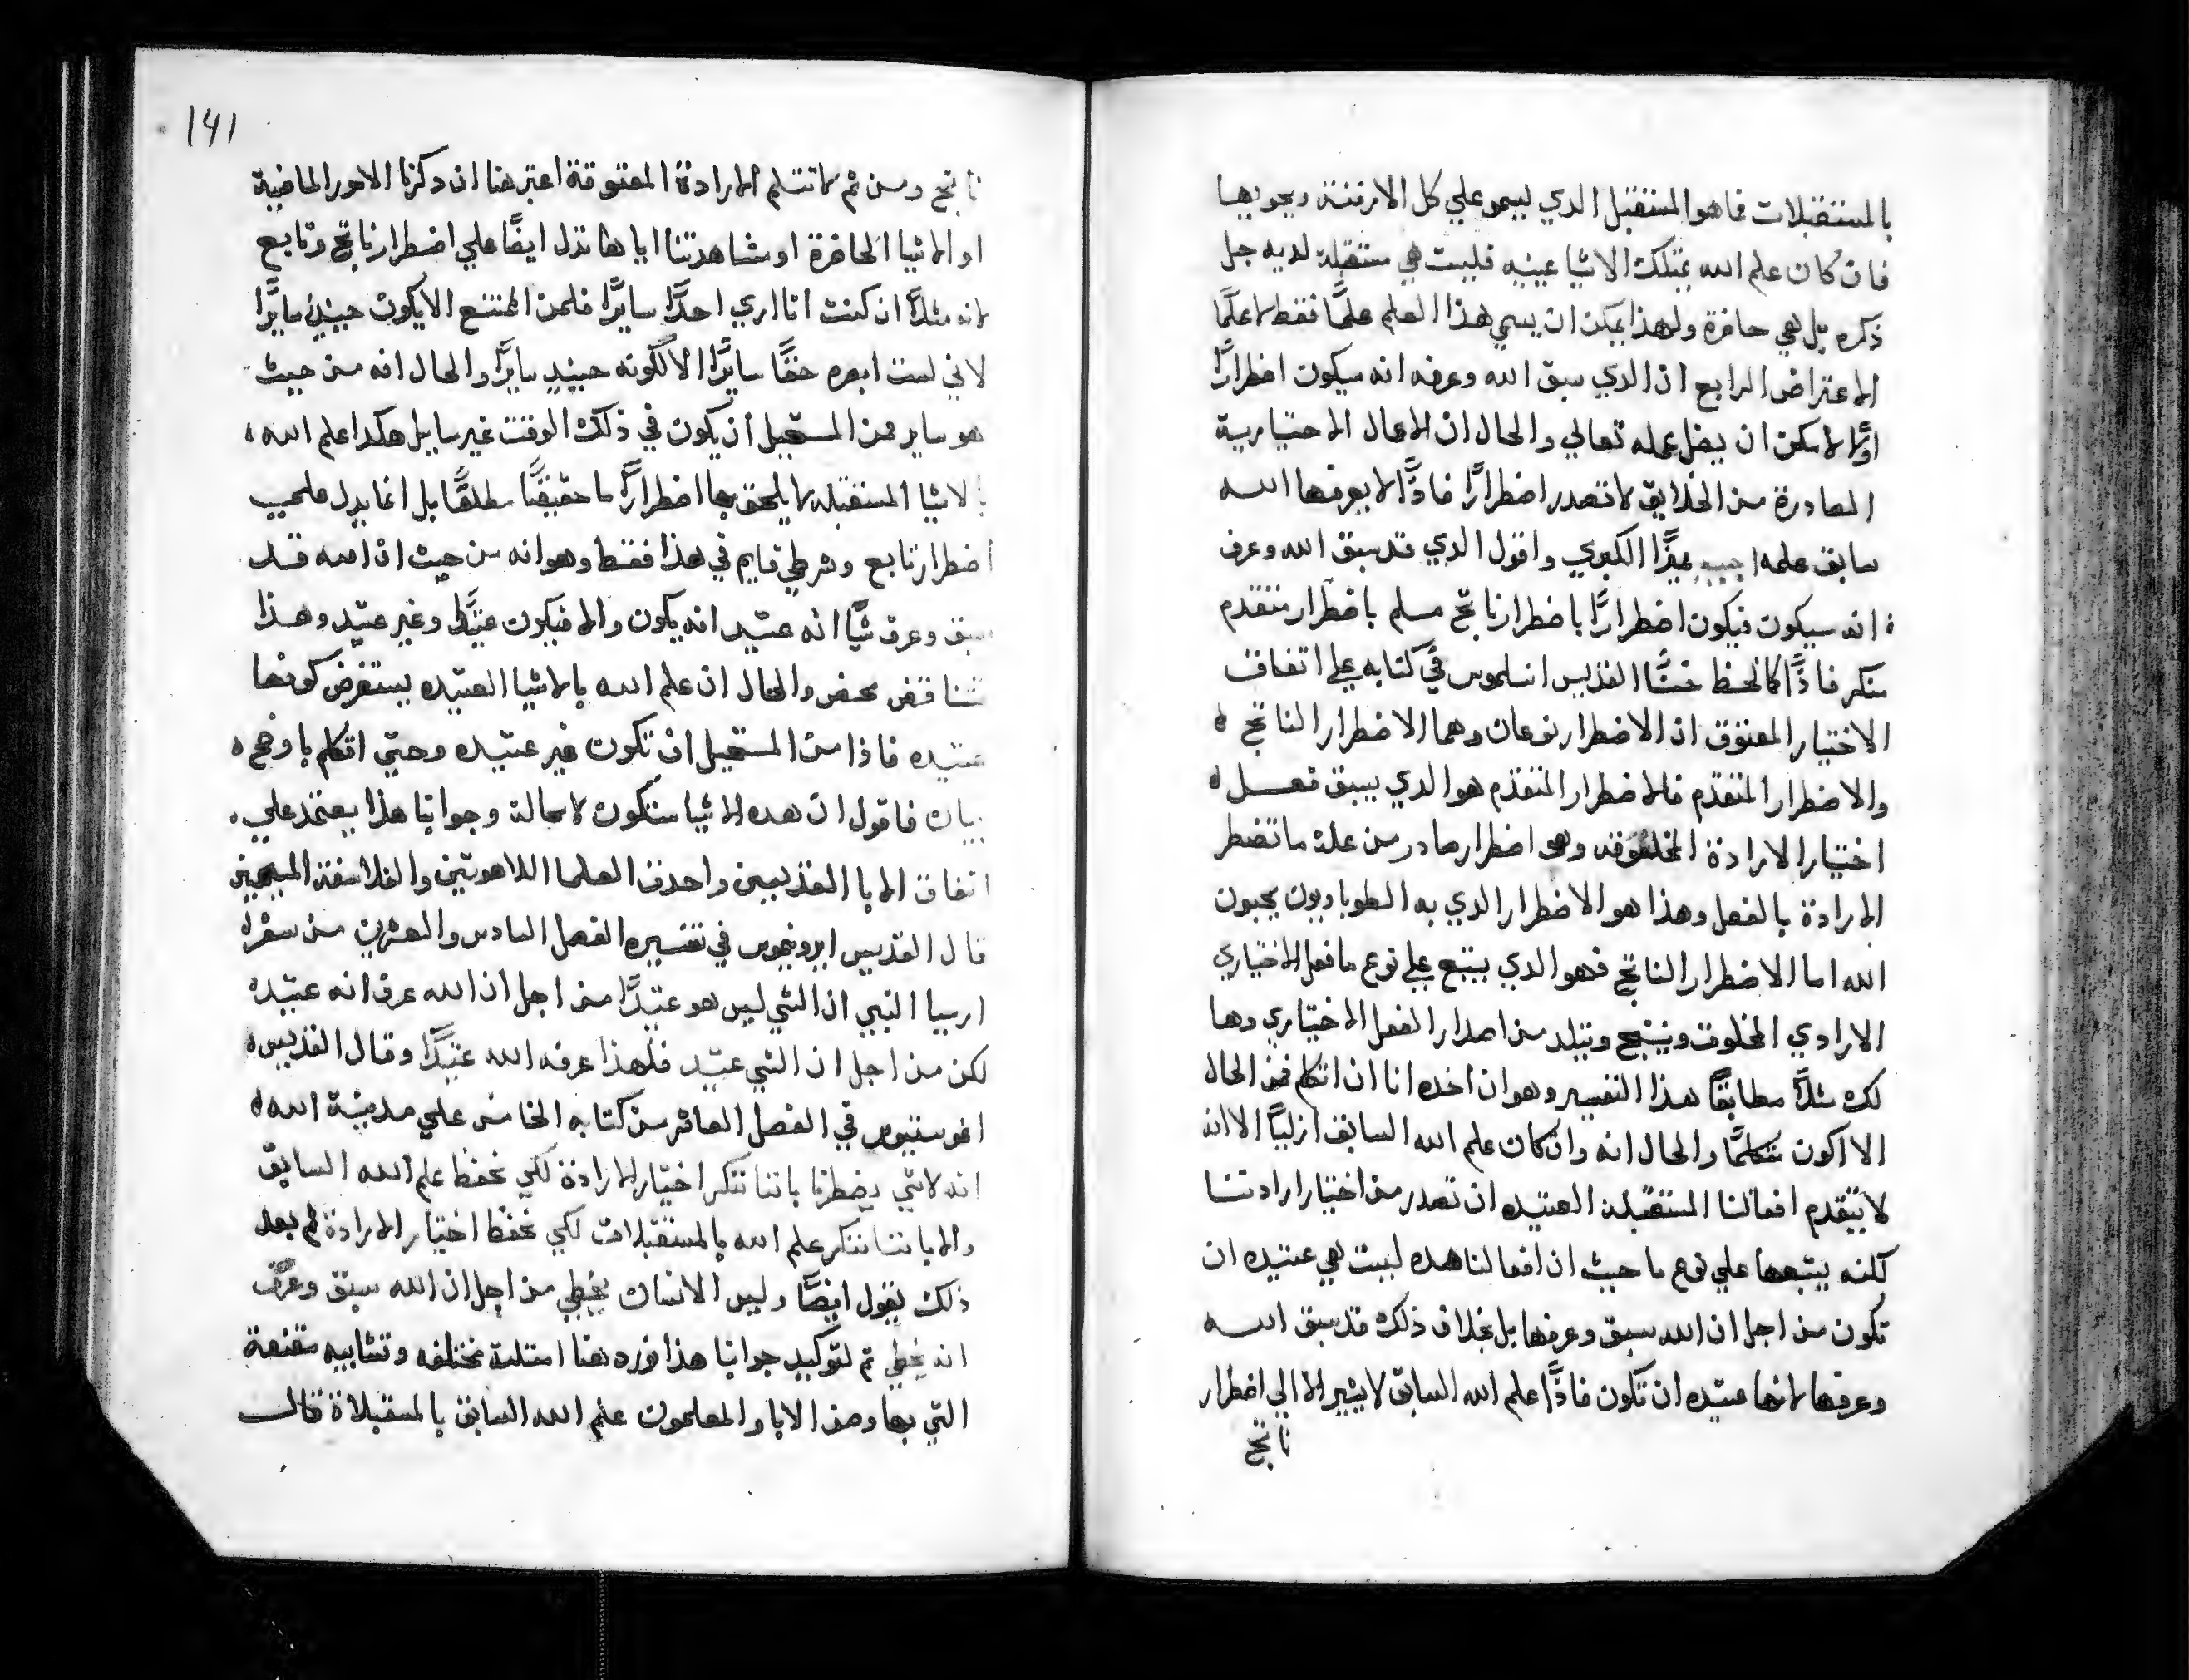 بالمستقبلات فما هو المستقبل الدي ليسمو علي كل الازمنة ويحويها
فان كان علم الله يمتلك الاشيا عينيه فليست هي مستقبلة لديه جل
ذكره بل هي حاضرة ولهذا يمكن ان يسمي هذا العلم علمًا فقط لا علمًا
الاعتراض الرابع ان الدي سبق الله وعرفه انه سيكون اضطرارًا
اولًا لا يمكن ان يضل علمه تعالي والحال ان الاعمال الاختيارية
الصادرة من الخلايق لا تصدر اضطرارًا فاذًا لا يعرفها الله
سابق علمه اجيب مميزًا الكبري واقول الدي قد سبق الله وعرف
انه سيكون فيكون اضطرارًا باضطرار ناتج مسلم باضطرار متقدم
منكر فاذًا كما لحظ حسنًا القديس انسلموس في كتابه علي اتفاق
الاختيار المعتوق ان الاضطرار نوعان وهما الاضطرار الناتج
والاضطرار المتقدم فالاضطرار المتقدم هو الدي يسبق فعل
اختيار الارادة المخلوقه وهو اضطرار صادر من علة ما تضطر
الارادة بالفعل وهذا هو الاضطرار الدي به الطوباويون يحبون
الله اما الاضطرار الناتج فهو الدي يتبع علي نوع ما فعل الاختياري
الارادي المخلوق وينتج ويتلد من اصدار الفعل الاختياري وها
لك مثلًا مطابقًا لهذا التفسير وهو ان اخده انا ان اتكلم فمن الحال
الا اكون متكلمًا والحال انه وان كان علم الله السابق ازليًا الا انه
لا يتقدم افعالنا المستقبلة العتيده ان تصدر من اختيار ارادتنا
لكنه يتبعها علي نوع ما حيث ان افعالنا هده ليست هي عتيده ان
تكون من اجل ان الله سبق وعرفها بل بخلاف ذلك قد سبق الله
وعرفها لانها عتيده ان تكون فاذًا علم الله السابق لا يشير الا الي اضطرار
ناتج
١٩١
ناتج ومن ثم لا تنثلم الارادة المعتوقة اعتبر هنا ان دكرنا الامور الماضية
او الاشيا الحاضرة او مشاهدتنا اياها تدل ايضًا علي اضطرار ناتج وتابع
لانه مثلًا ان كنت انا اري احدًا سايرًا فلمن الممتنع الا يكون حينيدٍ سايرًا
لاني لست ابصره حقًا سايرًا الا لكونه حينيدٍ سايرًا والحال انه من حيث
هو ساير فمن المستحيل ان يكون في ذلك الوقت غير ساير بل هكدا علم الله
بالاشيا المستقبله لا يلحق بها اضطرارًا ما حقيقيًا مطلقًا بل انما يدل علي
اضطرار تابع وشرطي قايم في هذا فقط وهو انه من حيث ان الله قد
سبق وعرف شيًا انه عتيد انه يكون والا فيكون عتيدًا وغير عتيد وهذا
تناقض محض والحال ان علم الله بالاشيا العتيده يستفرض كونها
عتيده فاذا من المستحيل ان تكون غير عتيده وحتي اتكلم باوضح
بيان فاقول ان هده الاشيا ستكون لا محالة وجوابنا هذا يعتمد علي
اتفاق الابا القديسين واحدق العلما اللاهوتيين والفلاسفة المسيحيين
قال القديس ايرونيموس في تفسيره الفصل السادس والعشرين من سفر
ارميا النبي ان الشي ليس هو عتيدًا من اجل ان الله عرف انه عتيده
لكن من اجل ان الشي عتيد فلهذا عرفه الله عتيدًا وقال القديس
اغوستنيوس في الفصل العاشر من كتابه الخامس علي مدينة الله
انه لا شي يضطرنا باننا ننكر اختيار الارادة لكي نحفظ علم الله السابق
والا باننا ننكر علم الله بالمستقبلات لكي نحفظ اختيار الارادة ثم بعد
ذلك يقول ايضًا وليس الانسان يخطي من اجل ان الله سبق وعرف
انه يخطي ثم لتوكيد جوابنا هذا نورد هنا امثلة مختلفه وتشابيه مقنعة
التي بها وصف الابا والمعلمون علم الله السابق بالمستقبلاة قال